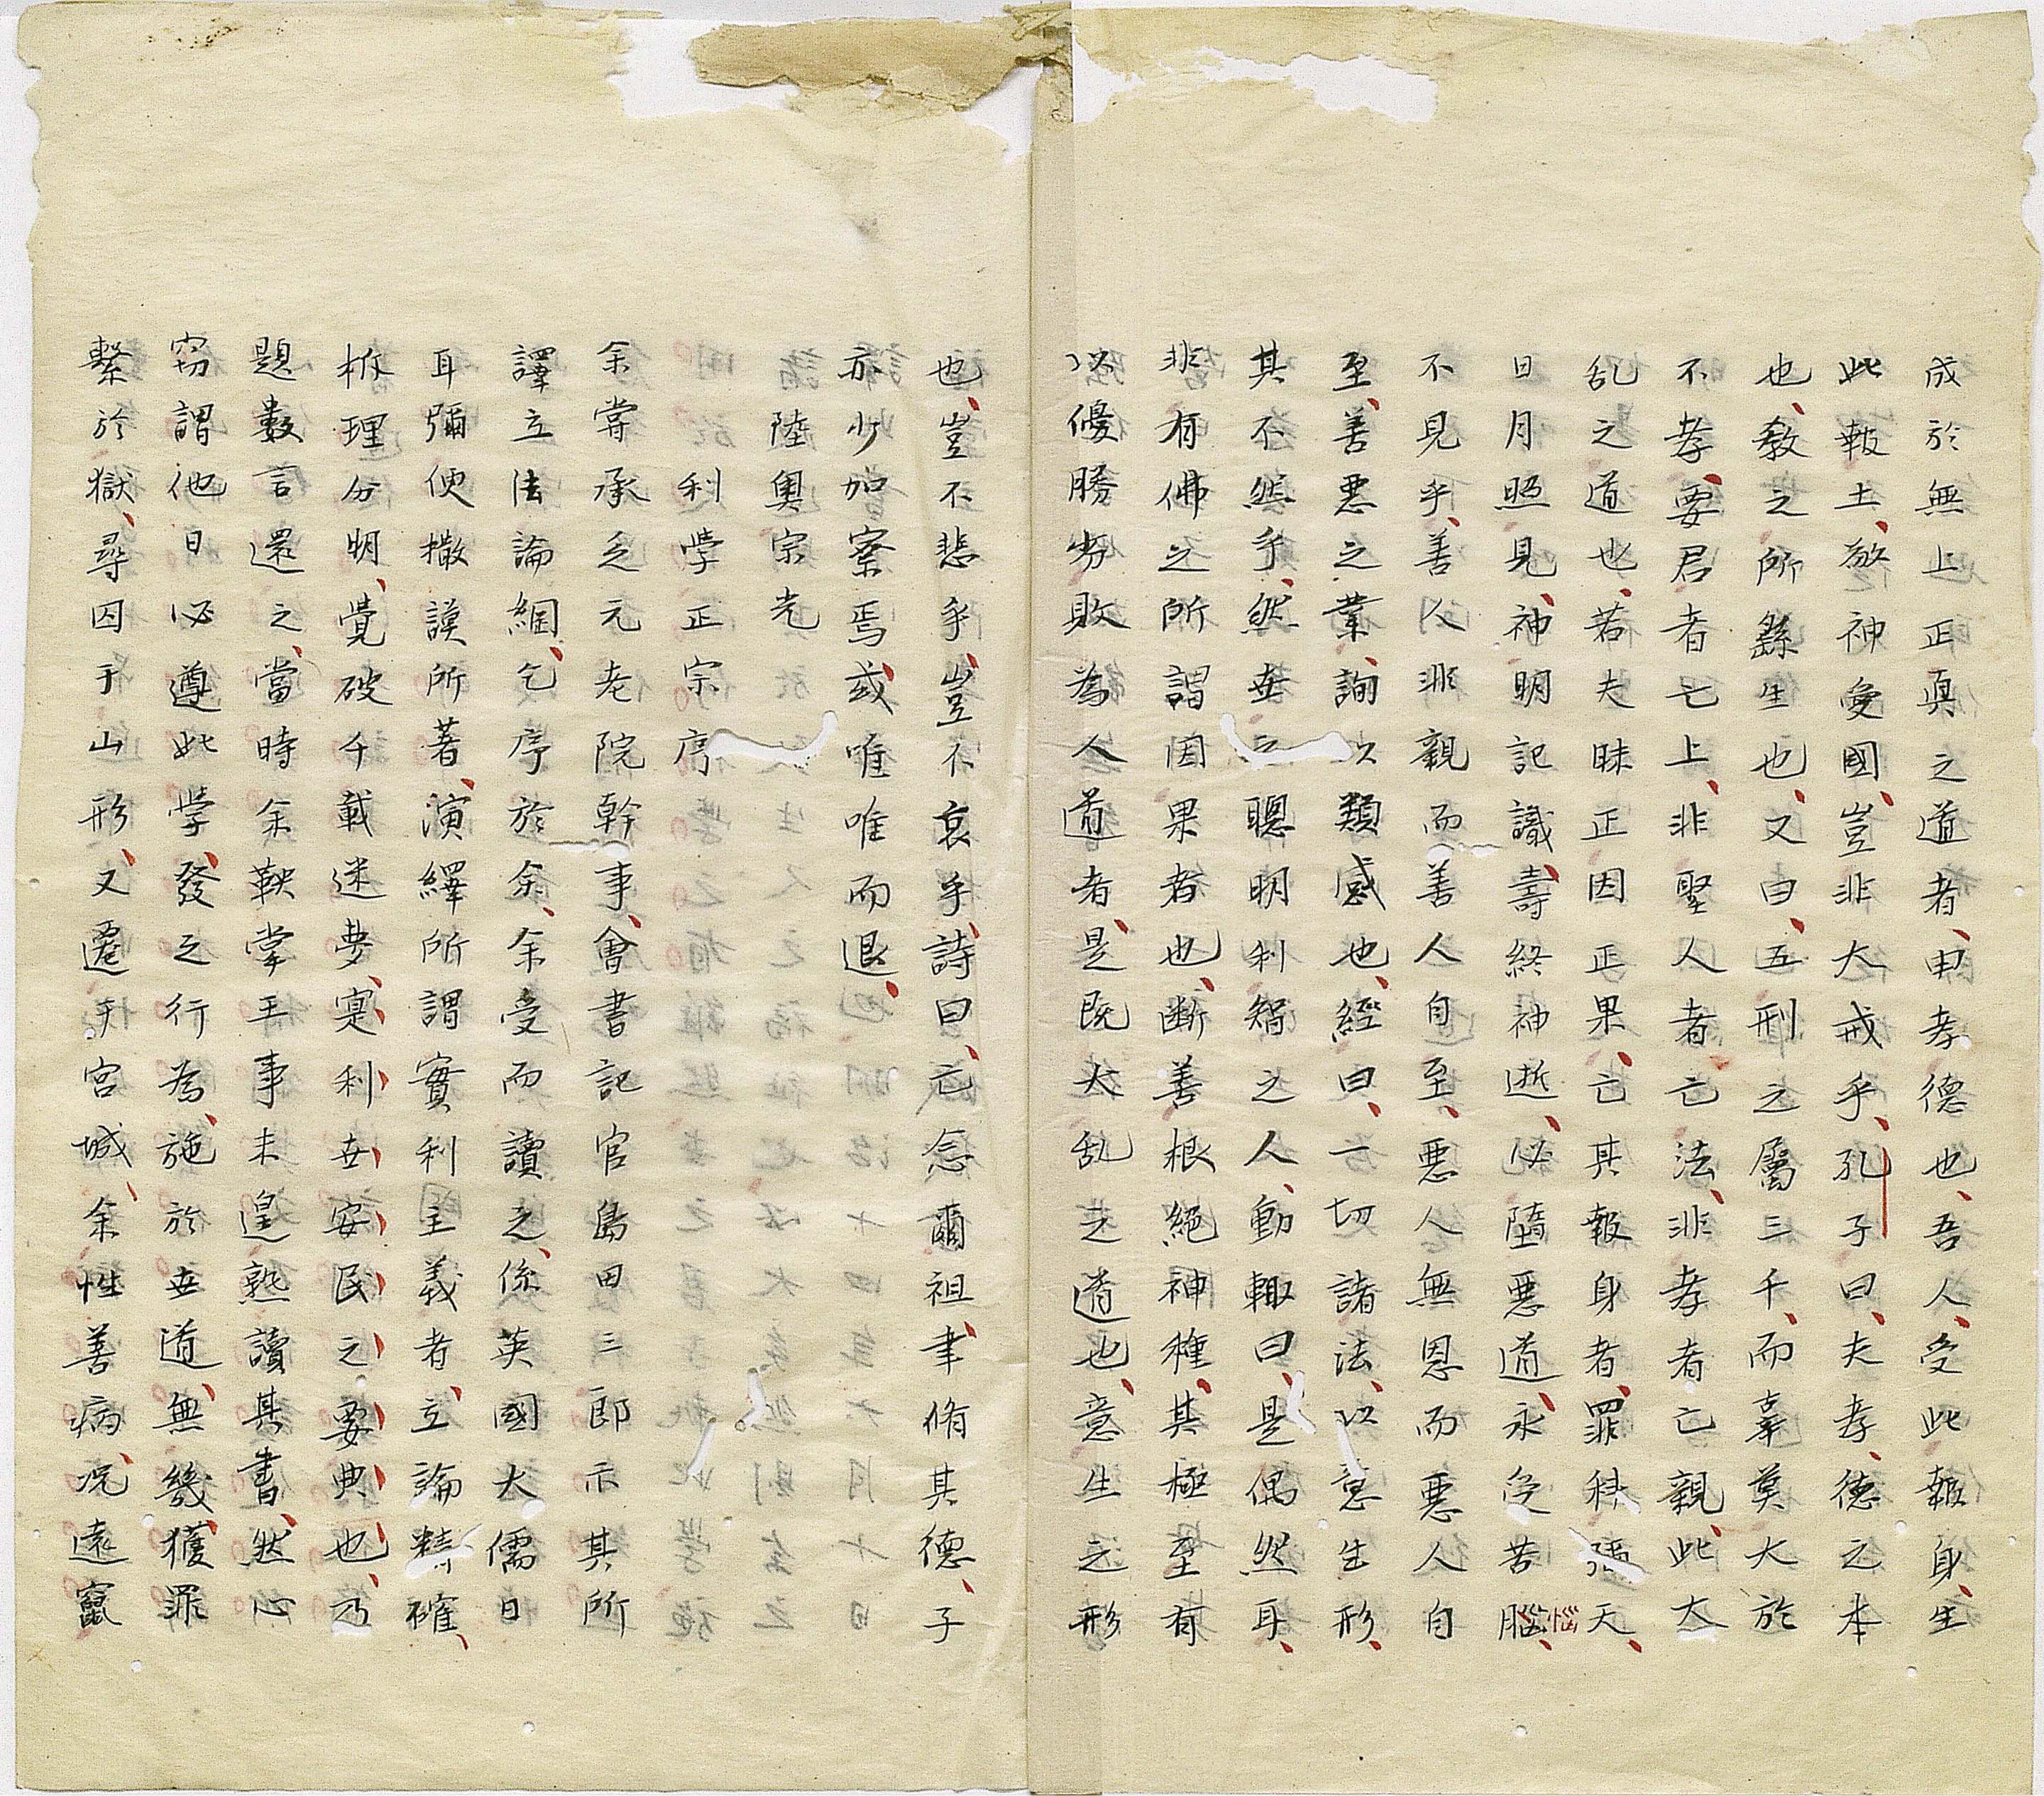 成於無上正真之道者、由孝德也、吾人、受此報身、生
此報土、敬神愛國、豈非大戒乎、孔子曰、夫孝、德之本
也、教之所繇生也、又曰、五刑之屬三千、而辜莫大於
不孝、要君者亡上、非聖人者亡法、非孝者亡親、此大
乱之道也、若夫昧正因正果、亡其報身者、罪科彌天、
日月照見、神明記識、壽終神逝、必墮惡道、永受苦腦惱、
不見乎、善人非親而善人自至、惡人無恩而惡人自
至、善惡之業、詢以類感也、經曰、一切諸法、以意生形、
其不然乎、然世之聰明利智之人、動輙曰、是偶然耳、
非有佛之所謂因果者也、斷善根絕神種、其極至有
以優勝劣敗為人道者、是既大乱之道也、意生之形
也、豈不悲乎、豈不哀乎、詩曰、亡念爾祖、聿脩其德、子
亦少加察焉、或唯唯而退、
陸奧宗光
利学正宗序
余嘗承乏元老院幹事、會書記官島田三郎示其所
譯立法論綱、乞序於余、余受而讀之、係英國大儒日
耳彌便撒謨所著、演繹所謂實利主義者、立論精確、
柝理分明、覺破千載迷夢、寔利世安民之要典也、乃
題數言還之、當時余鞅掌王事未遑熟讀其書、然心
窃謂他日必遵此学、發之行為、施於世道、無幾、獲罪
繫於獄、尋囚于山形、又遷于宮城、余性善病、况遠竄